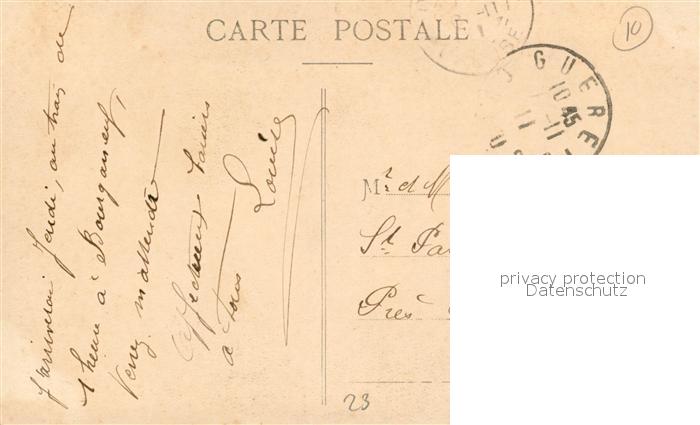 CARTE POSTALE
10
GUERE
10 45
11-11
J'arriverai Jeudi, au train de
1 heure à Bourganeuf,
Venez m'attendre
Affectueux baisers
à tous
Louise
Mr d M
St Par
Près
23
privacy protection
Datenschutz